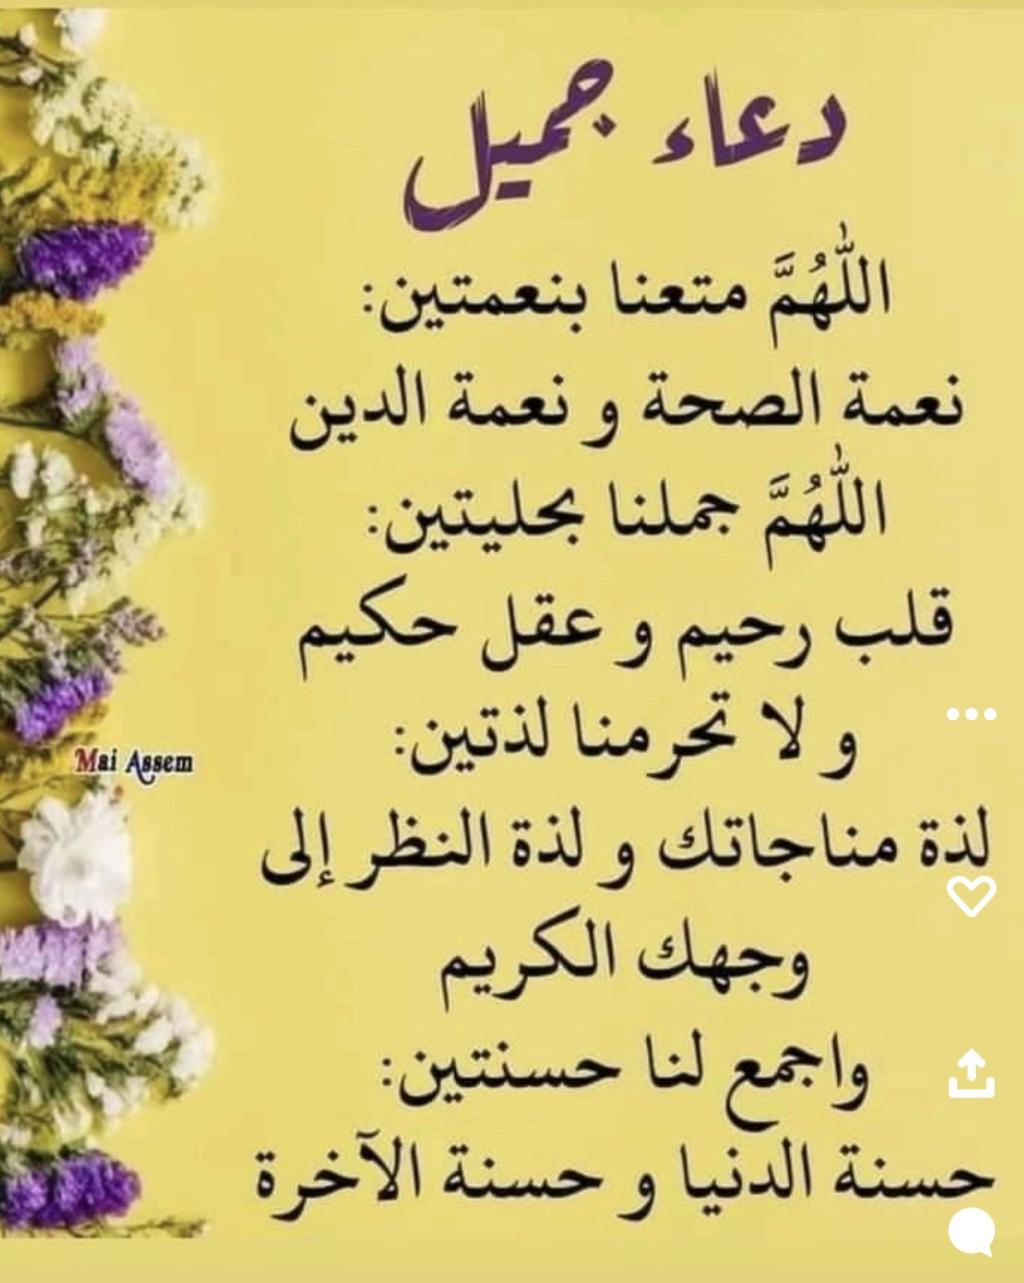 دعاء جميل
اللّٰهُمَّ متعنا بنعمتين:
نعمة الصحة و نعمة الدين
اللّٰهُمَّ جملنا بحليتين:
قلب رحيم و عقل حكيم
و لا تحرمنا لذتين:
Mai Assem
لذة مناجاتك و لذة النظر إلى
وجهك الكريم
واجمع لنا حسنتين:
حسنة الدنيا و حسنة الآخرة